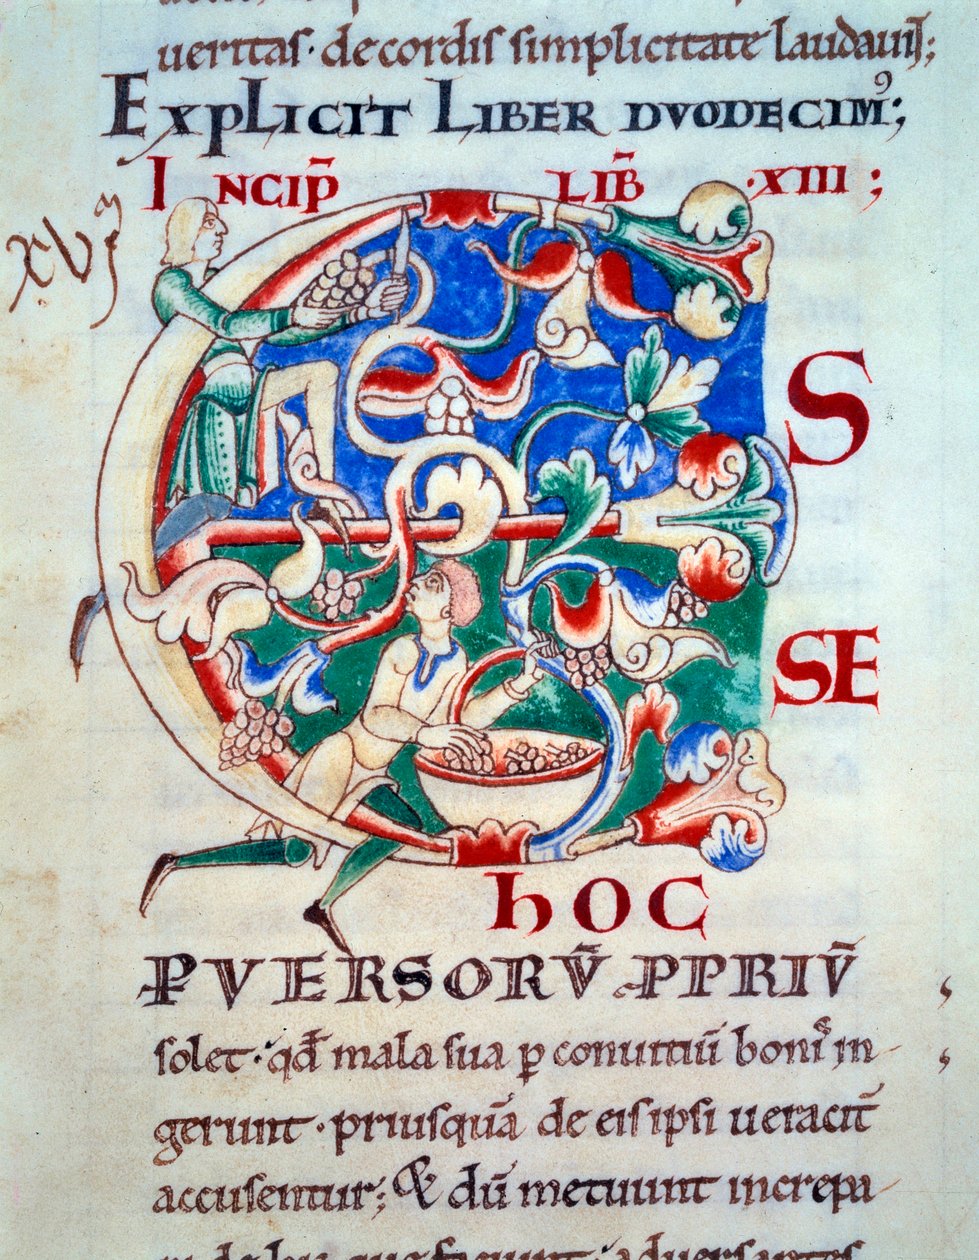 ueritas · de cordis simplicitate laudauit;
EXPLICIT LIBER DVODECIMꝰ;
INCIP̄ LIB̄ · XIII ;
xvj
E S
SE
hOC
PVERSORŪ PPRIŪ
solet · qđ mala sua p conuitiū bonis in
gerunt · priusquā de eis ipsi ueracit̄
accusentur; & dū metuunt increpa